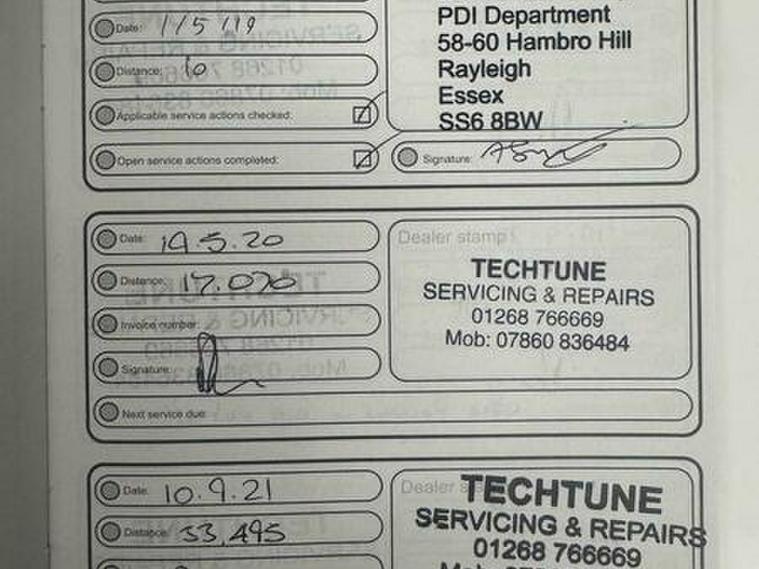 Date: 1/5/19
Distance: 10
Applicable service actions checked:
Open service actions completed:
PDI Department
58-60 Hambro Hill
Rayleigh
Essex
SS6 8BW
Signature:
Date: 19.5.20
Distance: 17.070
Invoice number:
Signature:
Next service due:
Dealer stamp
TECHTUNE
SERVICING & REPAIRS
01268 766669
Mob: 07860 836484
Date: 10.9.21
Distance: 33,495
Dealer
TECHTUNE
SERVICING & REPAIRS
01268 766669